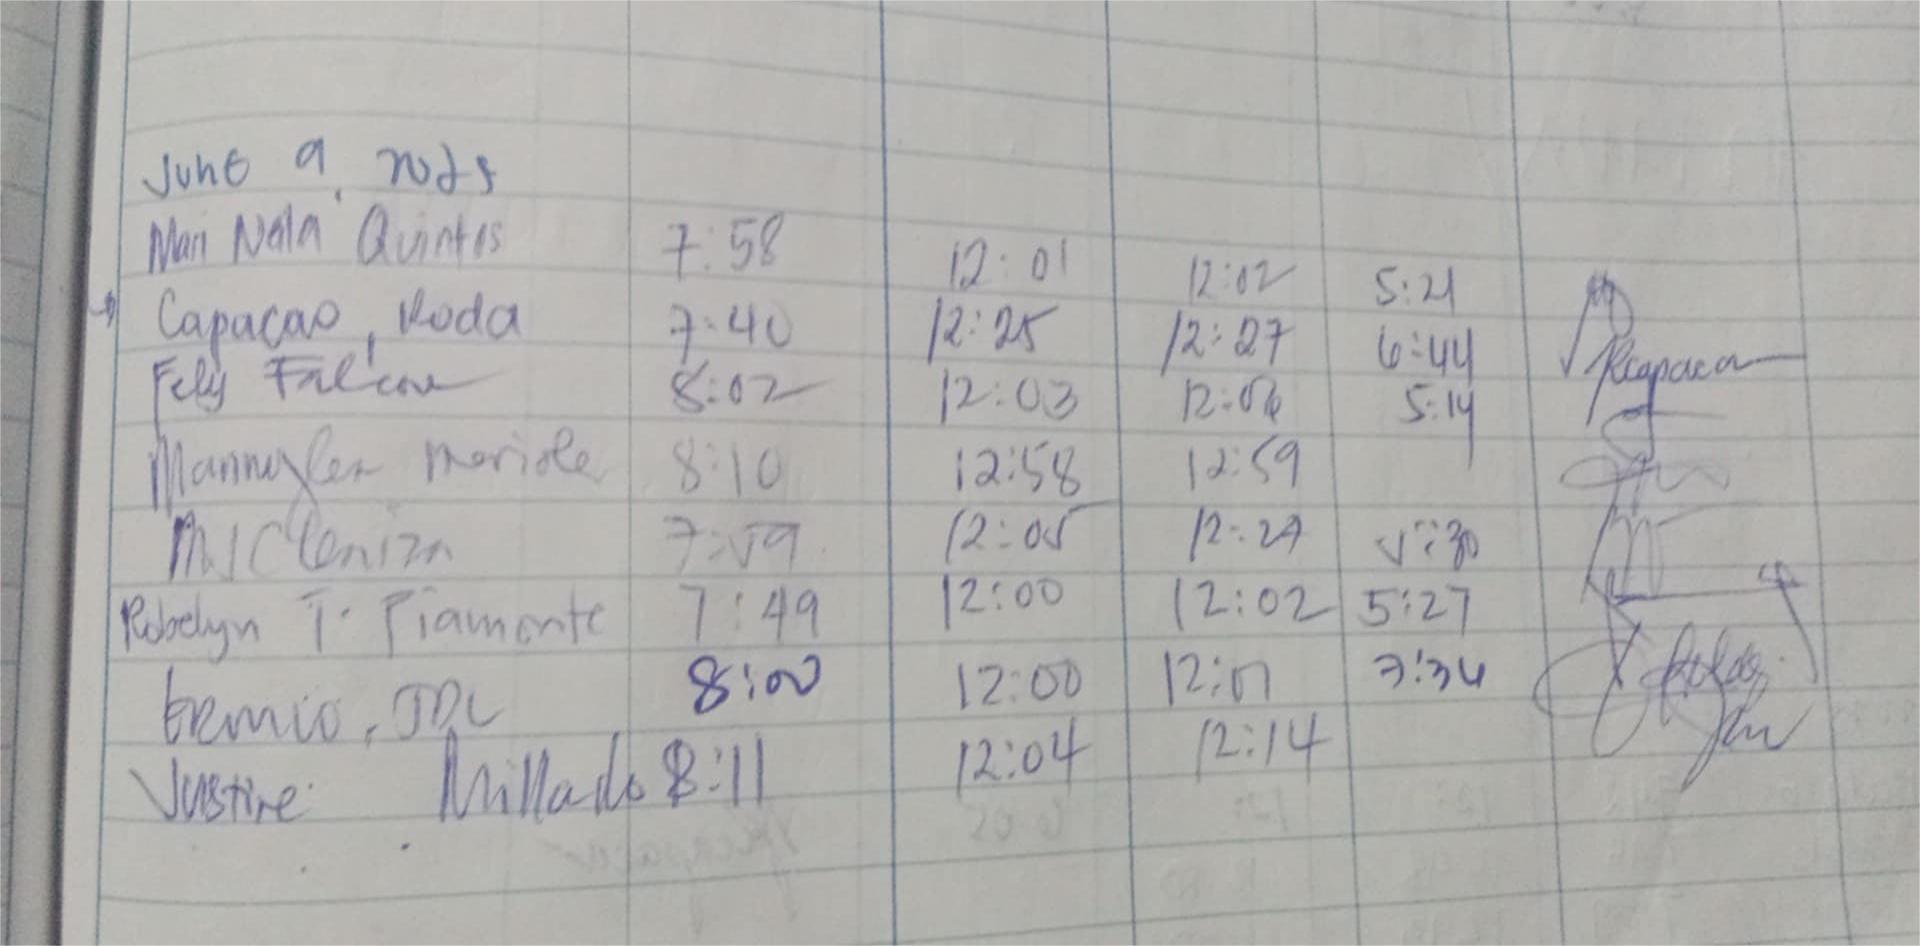 June 9, 2025
Mari Nala Quintos 7:58 12:01 12:02 5:21
Capacao, Roda 7:40 12:25 12:27 6:44 Rcapacao
Fely Falcon 8:02 12:03 12:06 5:14
8:10 12:58 12:59
7:59 12:05 12:27 5:30
Robelyn T. Piamonte 7:49 12:00 12:02 5:27
JDL 8:00 12:00 12:01 7:34
Justine Millado 8:11 12:04 12:14